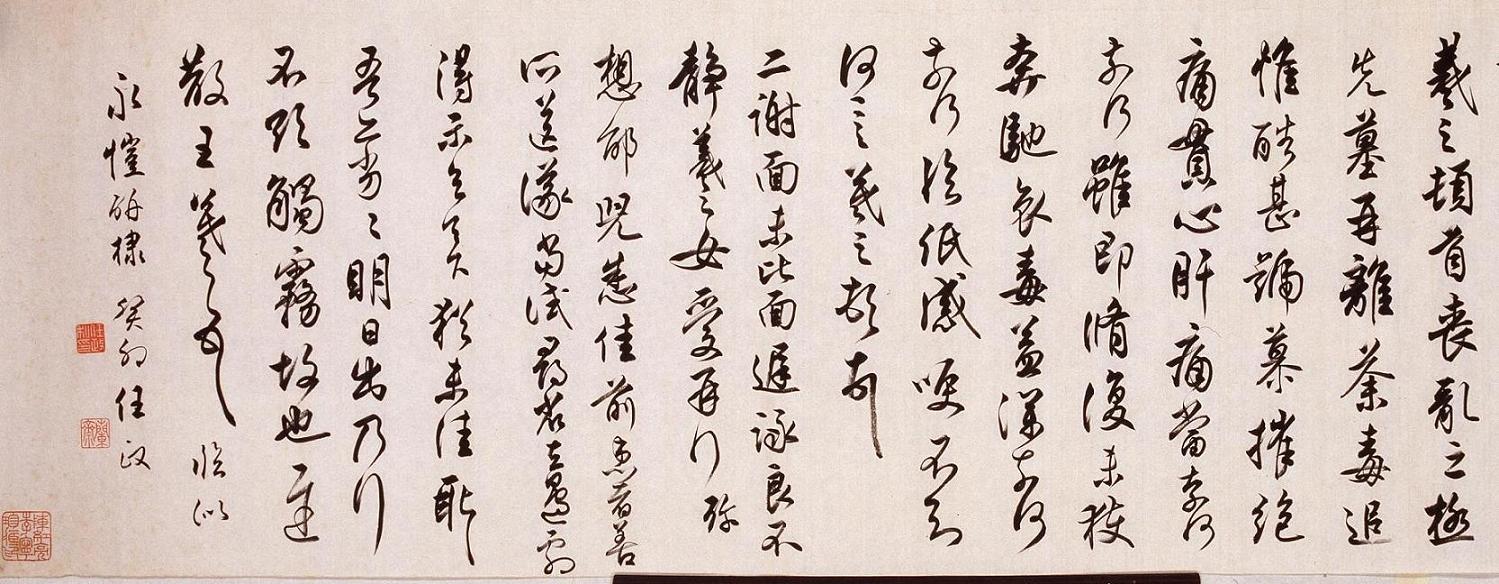 羲之頓首喪亂之極
先墓再離荼毒追
惟酷甚號慕摧絕
痛貫心肝痛當奈何
奈何雖即脩復未獲
奔馳哀毒益深奈何
奈何臨紙感哽不知
何言羲之頓首
二謝面未比面遲詠良不
靜羲之女愛再行 弥
想邵兒悉佳前患者善
所送議當試尋省左邊劇
得示知足下猶未佳耿耿
吾亦劣劣明日出乃行
不欲觸霧故也遲
散王羲之頓首 臨似
永愷 棣 癸卯 任政